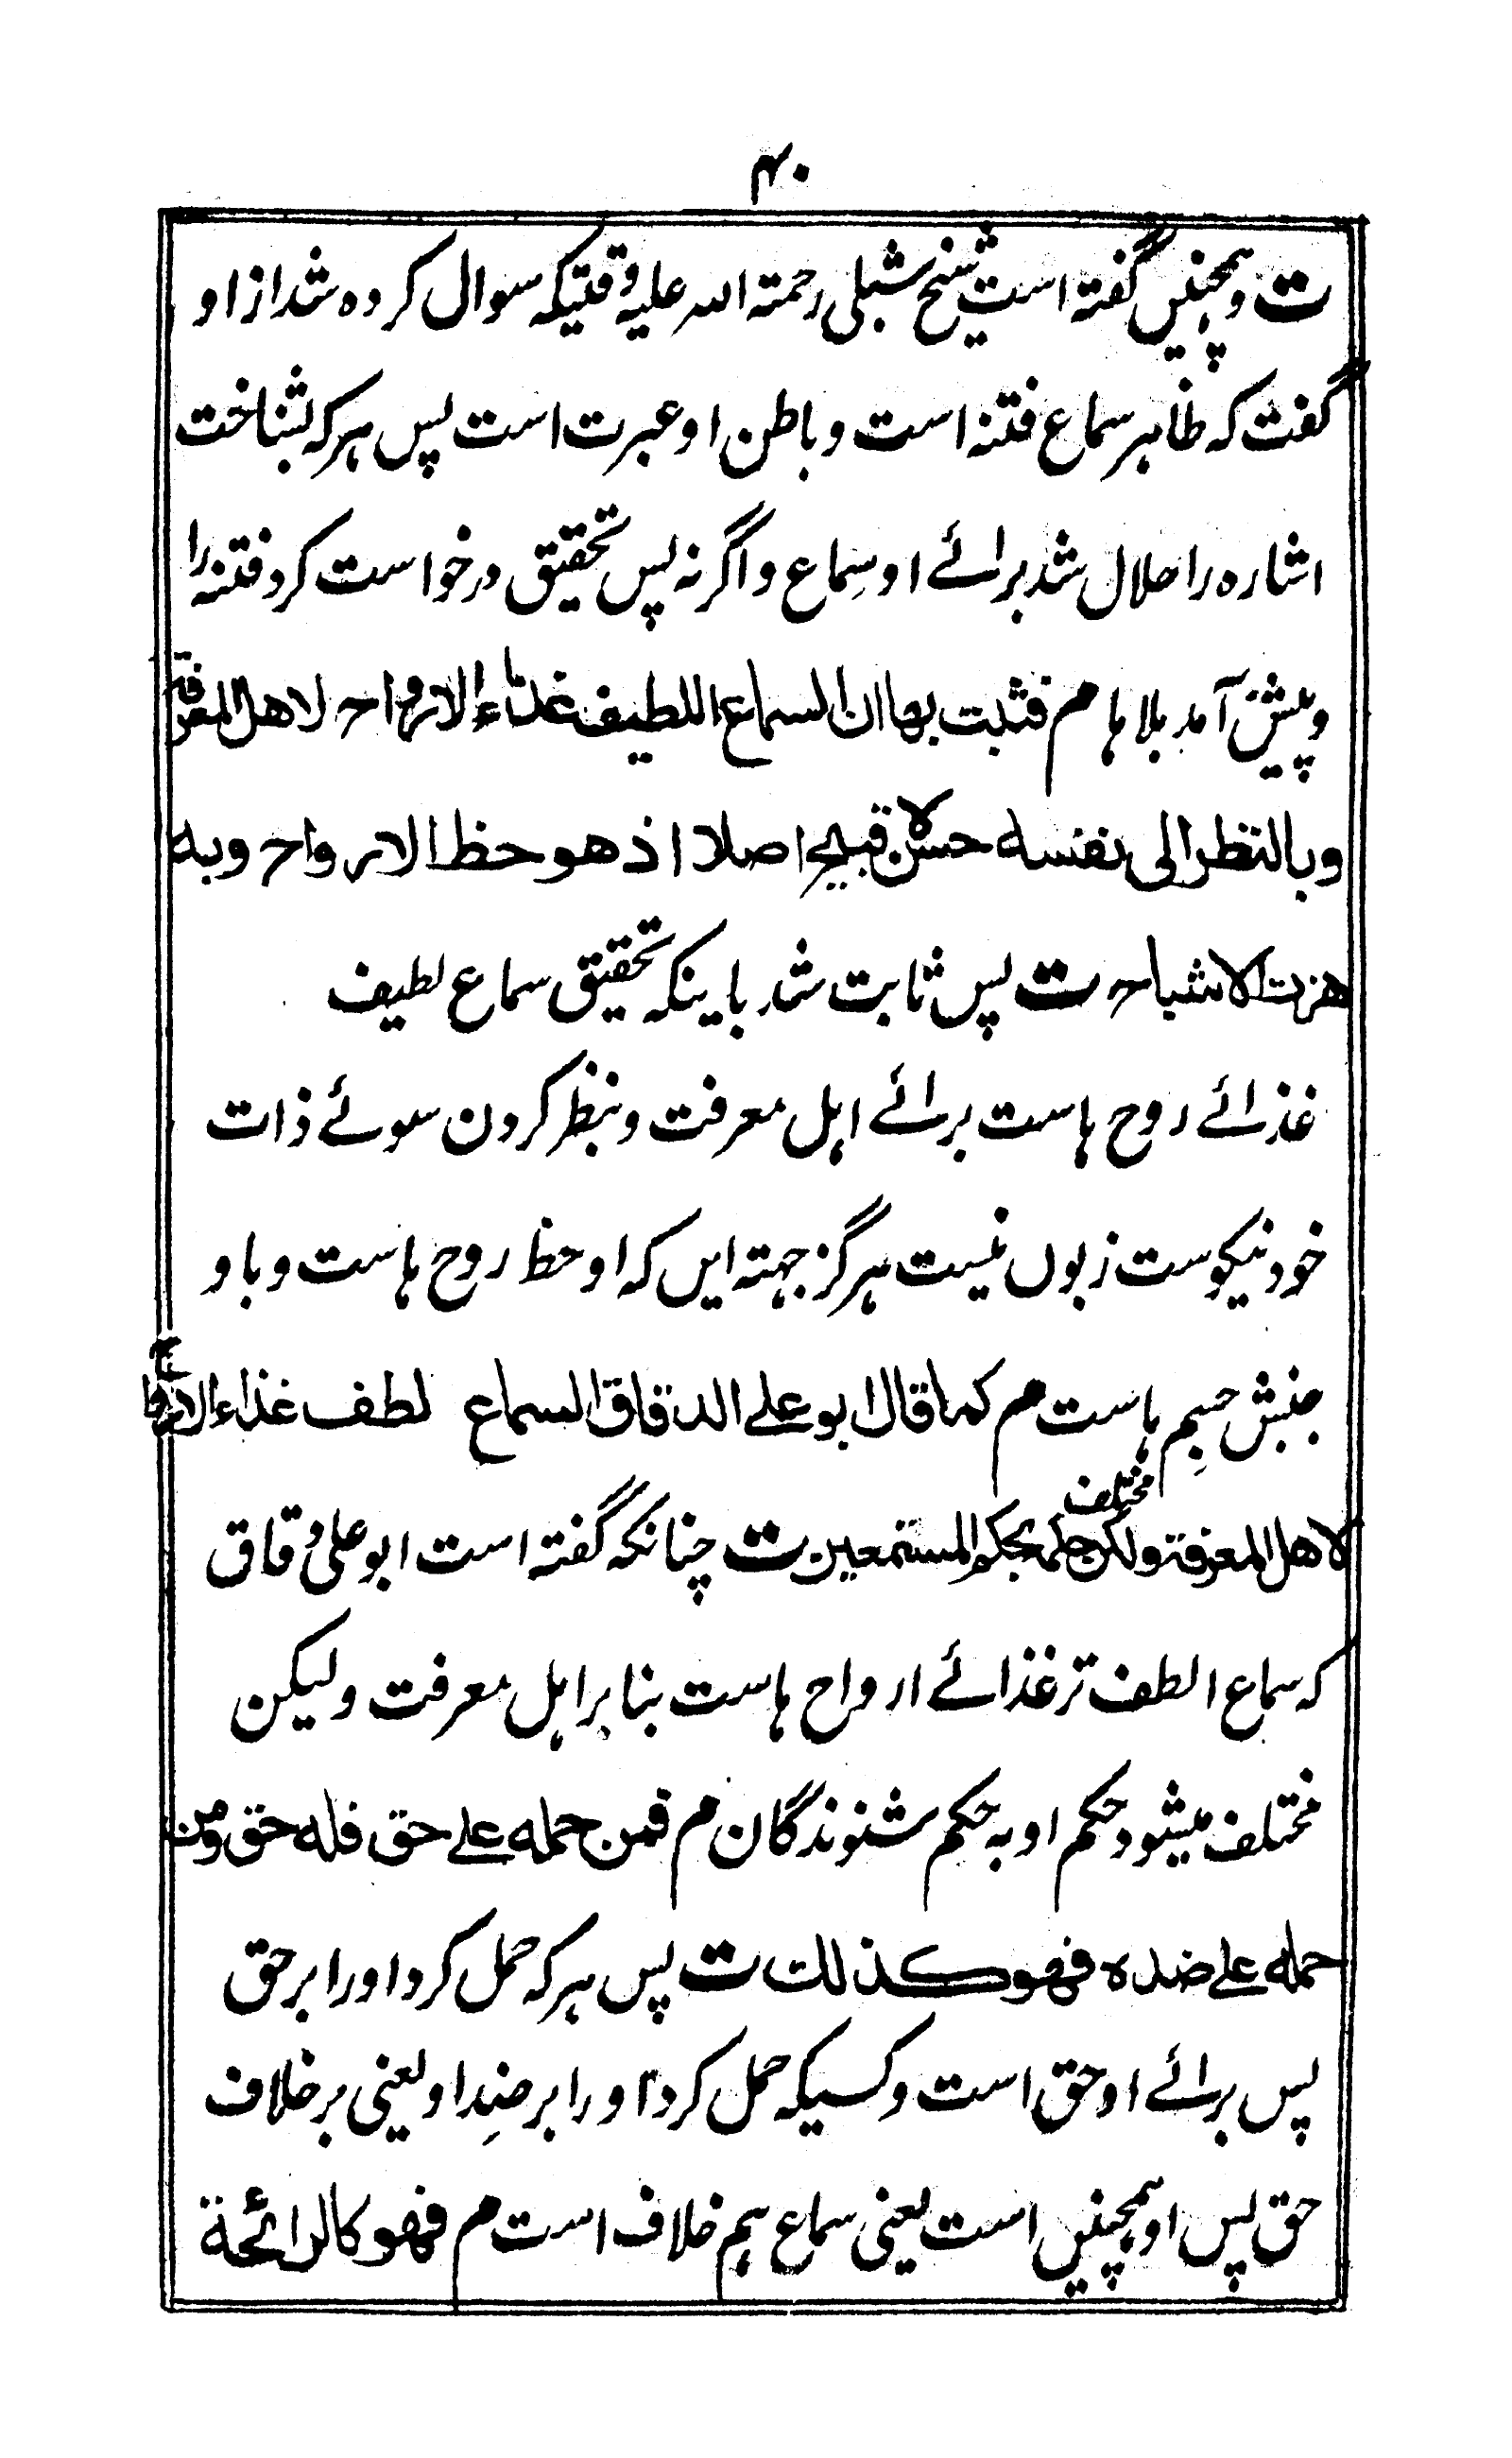 ۴۰
ت وہمچنیں گفتہ است شیخ شبلی رحمتہ اللہ علیہ وقتیکہ سوال کردہ شد از او
گفت کہ ظاہر سماع فتنہ است و باطن او عبرت است پس ہر کہ بشناخت
اشارہ را حلال شد برائے او سماع و اگر نہ پس تحقیق درخواست کرد فتنہ را
و پیش آمد بلا ہا م فثبت بها ان السماع اللطیف غذاء الارواح لاهل المعرفة
وبالنظر الی نفسه حسن لا قبیح اصلا اذ هو حظ الارواح وبه
هزت الاشباح ت پس ثابت شد باینکہ تحقیق سماع لطیف
غذائے روح ہاست برائے اہل معرفت و بنظر کردن سوئے ذات
خود نیکوست زبوں نیست ہرگز جہتہ ایں کہ او حظ روح ہاست و باو
جنبش جسِم ہاست م کما قال ابو علی الدقاق السماع لطف غذاء الارواح
لاهل المعرفة ولکن حکمه مختلف بحکم المستمعین ت چنانکہ گفتہ است ابو علی دقاق
کہ سماع الطف تر غذائے ارواح ہاست بنا بر اہل معرفت و لیکن
مختلف میشود حکم او بہ حکم شنوندگان م فمن حمله علی حق فله حق ومن
حمله علی ضده فهو کذلك ت پس ہر کہ حمل کرد او را بر حق
پس برائے او حق است و کسیکہ حمل کرد او را بر ضدِ او یعنی بر خلاف
حق پس او ہمچنیں است یعنی سماع ہم خلاف است م فهو کالرائحة